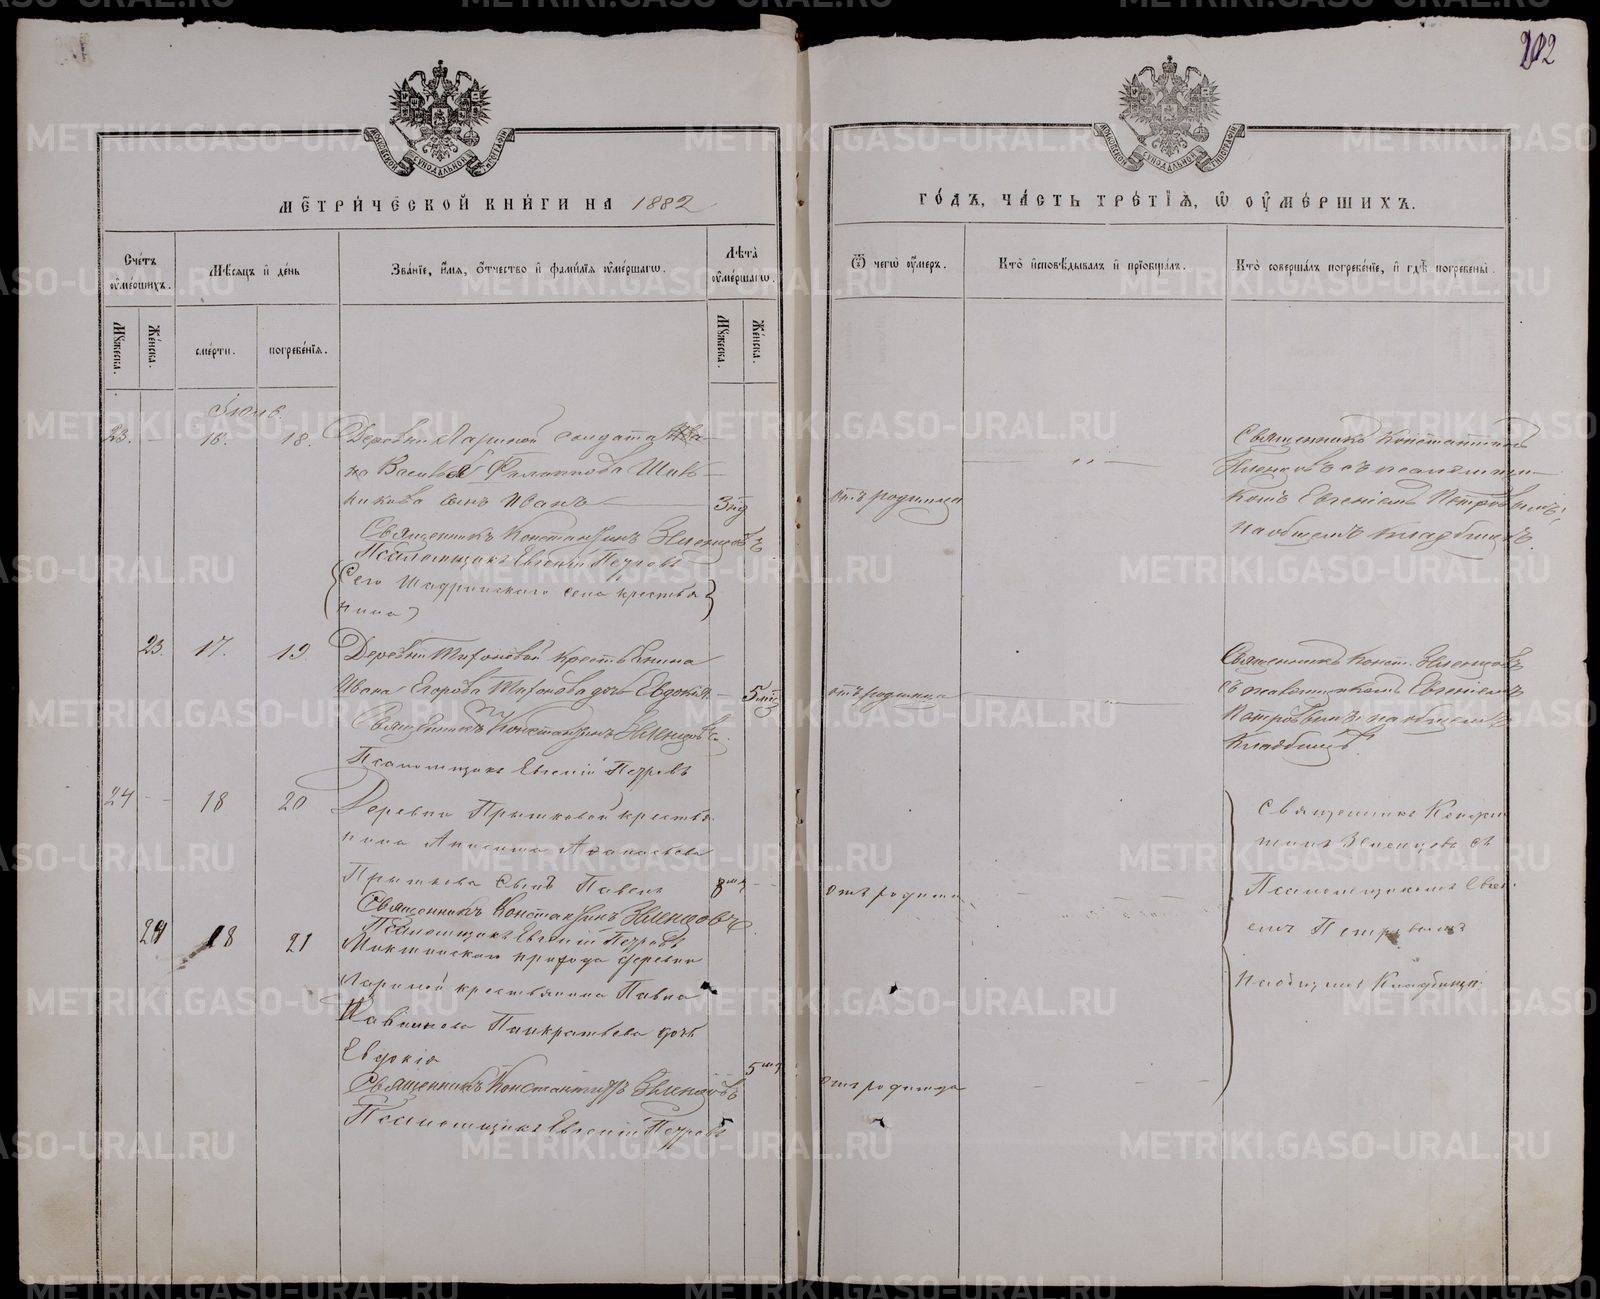 212
МЕТРИЧЕСКОЙ КНИГИ НА 1882
ГОДЪ, ЧАСТЬ ТРЕТІЯ, Ѡ ОУМЕРШИХЪ.
Счетъ оумершихъ.
Мѣсяцъ и день
Званіе, имя, отчество и фамилія оумершагѡ.
Лѣта оумершагѡ.
Ѿ чегѡ оумеръ.
Кто исповѣдывалъ и пріобщалъ.
Кто совершалъ погребеніе, и гдѣ погребены.
Мужеска.
Женска.
смерти.
погребенія.
Мужеска.
Женска.
Іюль.
23. — 16. 18. Деревни Лариной солдата Ива-
на Васильева Филиппова
сынъ Иванъ 3 нд
отъ родимца
Священникъ Константинъ
Зеленцовъ съ псаломщи-
комъ Евгеніемъ Петровымъ,
на общемъ кладбищѣ.
Священникъ Константинъ Зеленцовъ
Псаломщикъ Евгеній Петровъ
(Сего Шадринскаго села крестья
нина)
23. 17. 19. Деревни Тифоновой крестьянина
Ивана Егорова дочь Евдокія 5 мц
отъ родимца
Священникъ Конст. Зеленцовъ
съ псаломщикомъ Евгеніемъ
Петровымъ на общемъ
кладбищѣ.
Священникъ Константинъ Зеленцовъ
Псаломщикъ Евгеній Петровъ
24 — 18 20 Деревни Прытковой крестья
нина Аникиты Аѳанасьева
Прыткова сынъ Павелъ 8 мц
отъ родимца
Священникъ Констан
тинъ Зеленцовъ съ
Псаломщикомъ Евген
емъ Петровымъ
на общемъ кладбищѣ.
Священникъ Константинъ Зеленцовъ
Псаломщикъ Евгеній Петровъ
24 18 21 прихода деревни
Лариной крестьянина Павла
Панкратьева дочь
Евдокія 5 мц
отъ родимца
Священникъ Константинъ Зеленцовъ
Псаломщикъ Евгеній Петровъ
METRIKI.GASO-URAL.RU